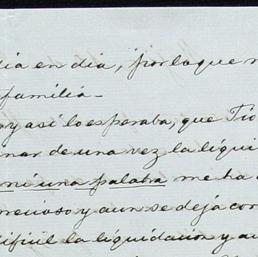 dia en dia, por lo que
familia_
y así lo esperaba, que Tio
nar de una vez la liqui
ni una palabra me ha
y aun se deja cor
la liquidacion y au